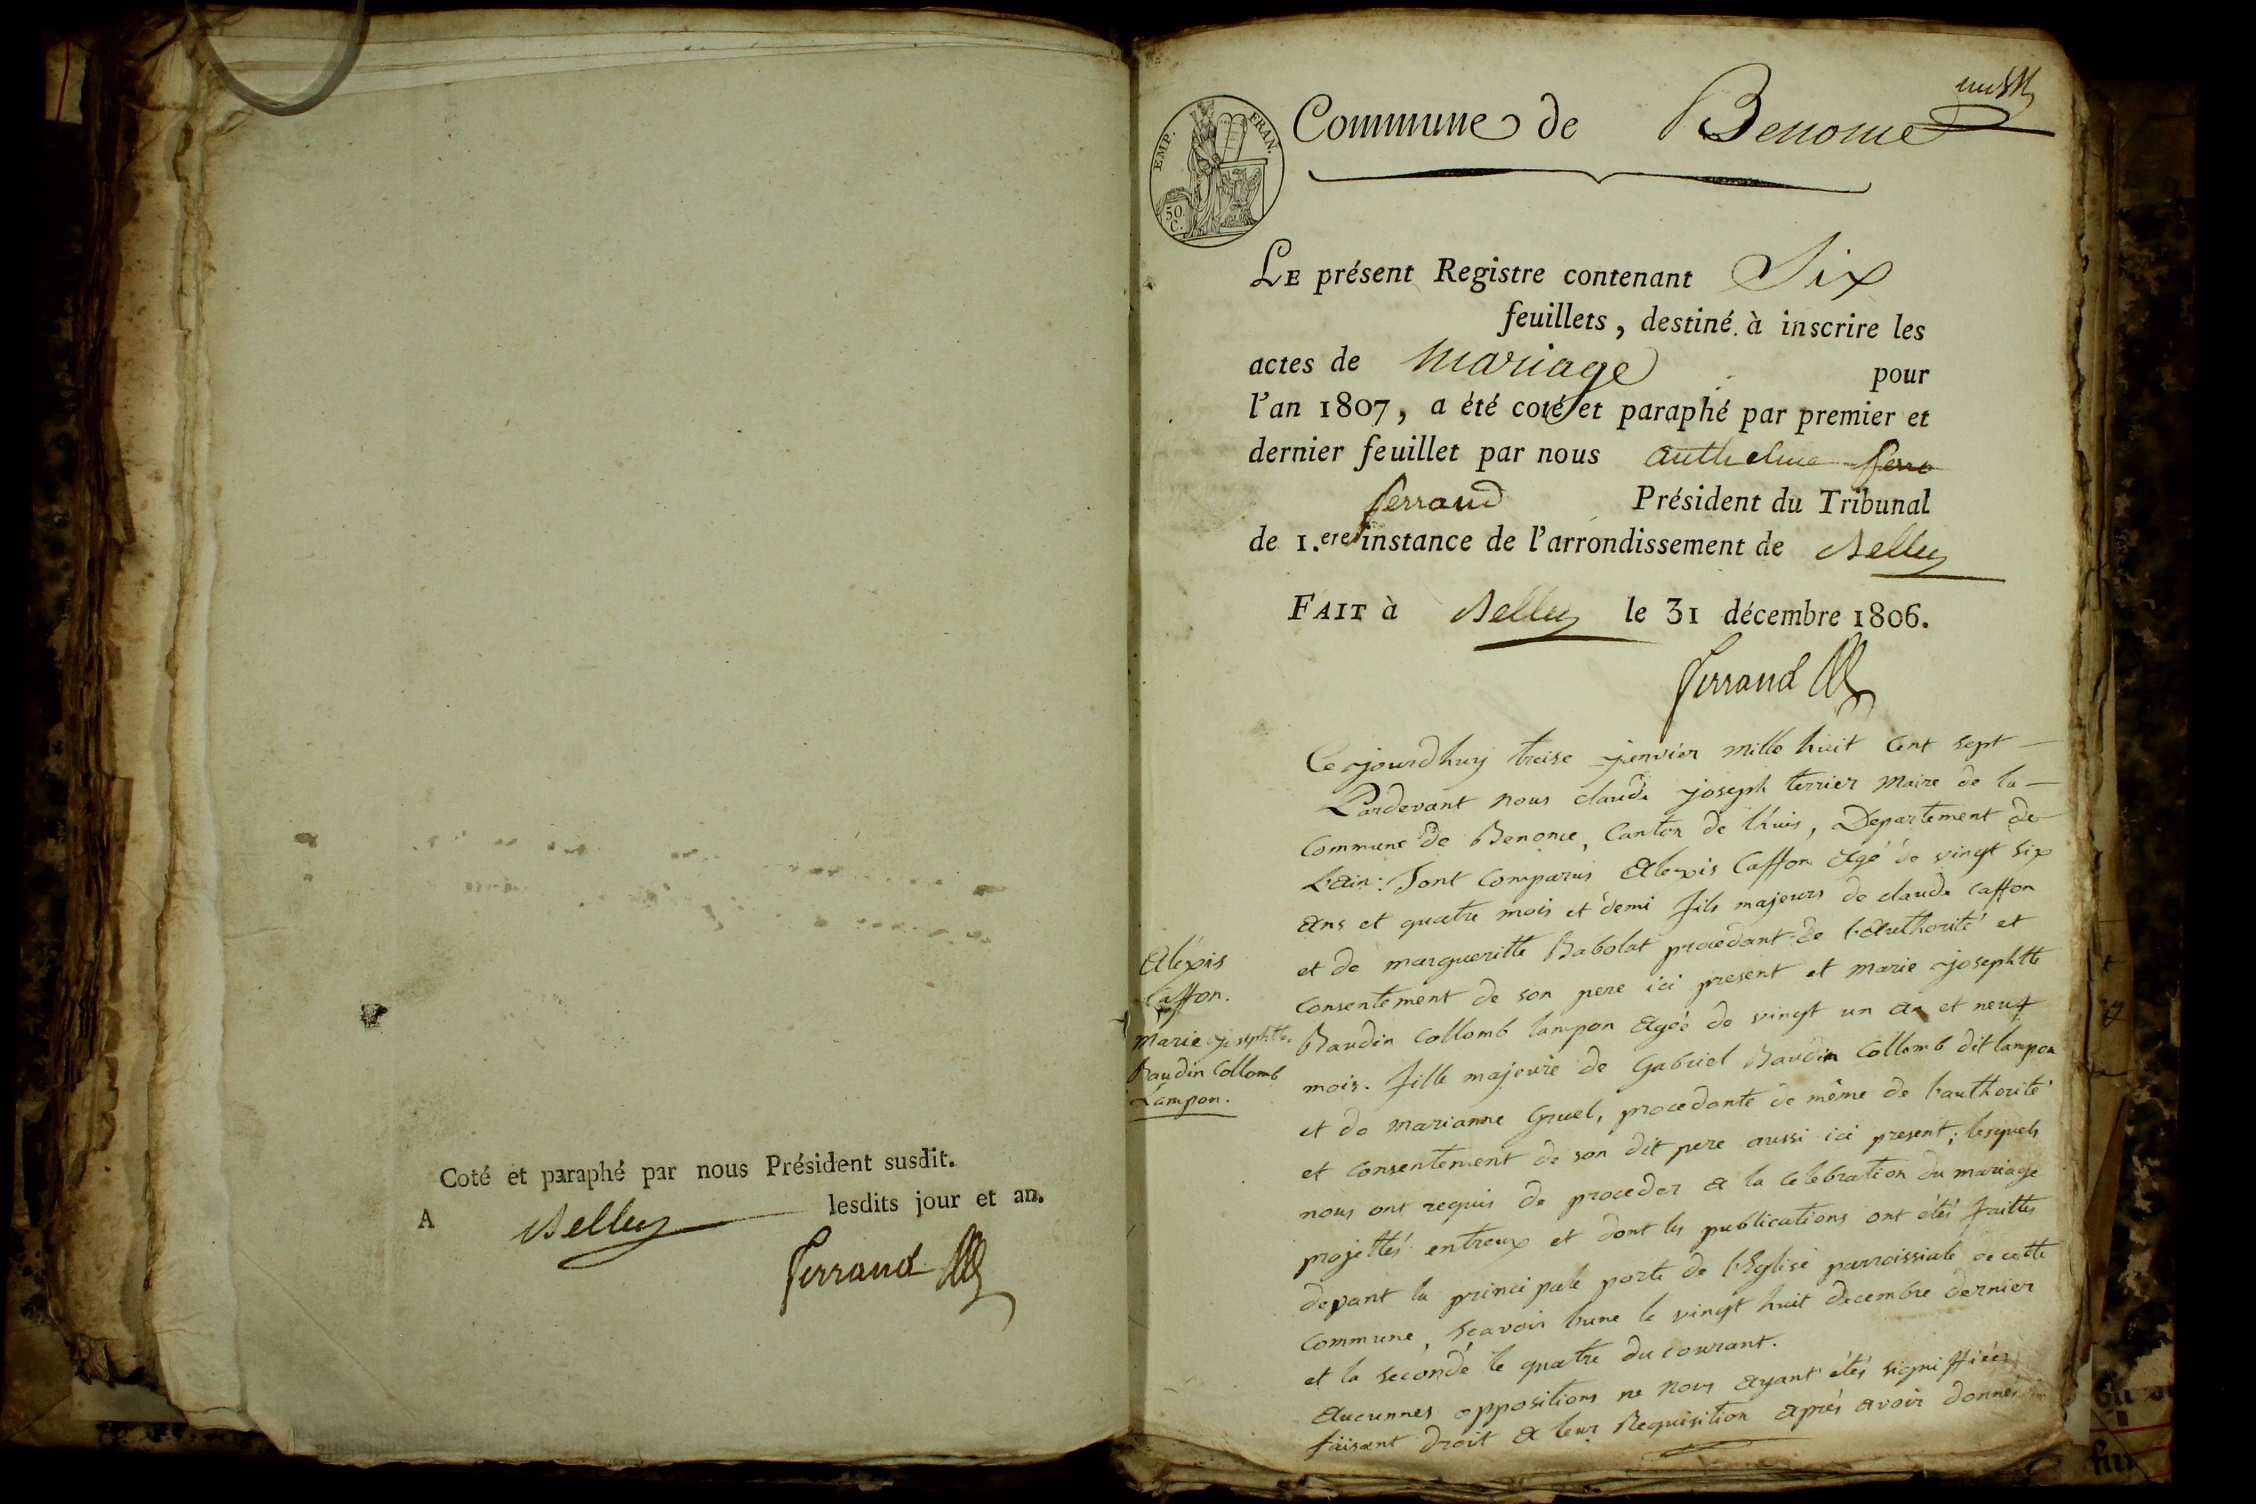 Coté et paraphé par nous Président susdit.
A Belley lesdits jour et an.
Ferrand
EMP. FRAN.
50 C.
Commune de Benonce
LE présent Registre contenant Six
feuillets, destiné à inscrire les
actes de mariage pour
l'an 1807, a été coté et paraphé par premier et
dernier feuillet par nous anthelme ferra
ferrand Président du Tribunal
de 1.ere instance de l'arrondissement de Belley
FAIT à Belley le 31 décembre 1806.
Ferrand
Cejourdhuy treise jenvier mille huit cent sept
Pardevant nous claude joseph terrier Maire de la
Commune de Benonce, Canton de lhuis, Departement de
L'ain: Sont Comparus Alexis Caffon Agé de vingt six
Ans et quatre mois et demi fils majeurs de claude caffon
et de margueritte Babolat procedant de l'Authorité et
Consentement de son pere ici present et marie josephtte
Baudin Collomb lampon Agéé de vingt un an et neuf
mois. fille majeure de Gabriel Baudin Collomb dit lampon
et de marianne Gruel, procedante de même de l'authorité
et Consentement de son dit pere aussi ici present; lesquels
nous ont requis de proceder a la celebration du mariage
projettés entreux et dont les publications ont étés faittes
devant la principale porte de l'Eglise parroissiale de cette
Commune, Sçavoir l'une le vingt huit decembre dernier
et la seconde le quatre du courant.
Aucunnes oppositions ne nous ayant étés signiffiées
faisant droit a leur Requisition aprés avoir donnés
Aléxis
Caffon.
marie josephtte
Baudin Collomb
Lampon.